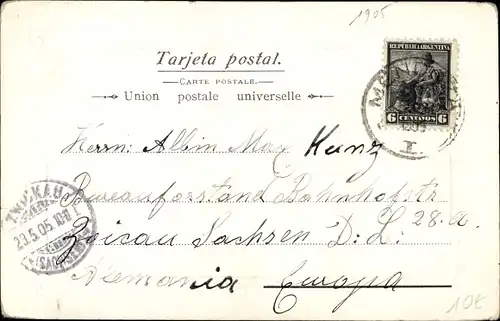 1905
Tarjeta postal.
CARTE POSTALE.
Union postale universelle
REPUBLICA ARGENTINA
6 CENTAVOS 6
I.
Herrn: Albin Max Kunz
Bureauforstand Bahnhofstr
Zwicau Sachsen D. L. 28.a
Alemania Europa
ZWICKAU
23.5.05.
(SACHSEN)
10€